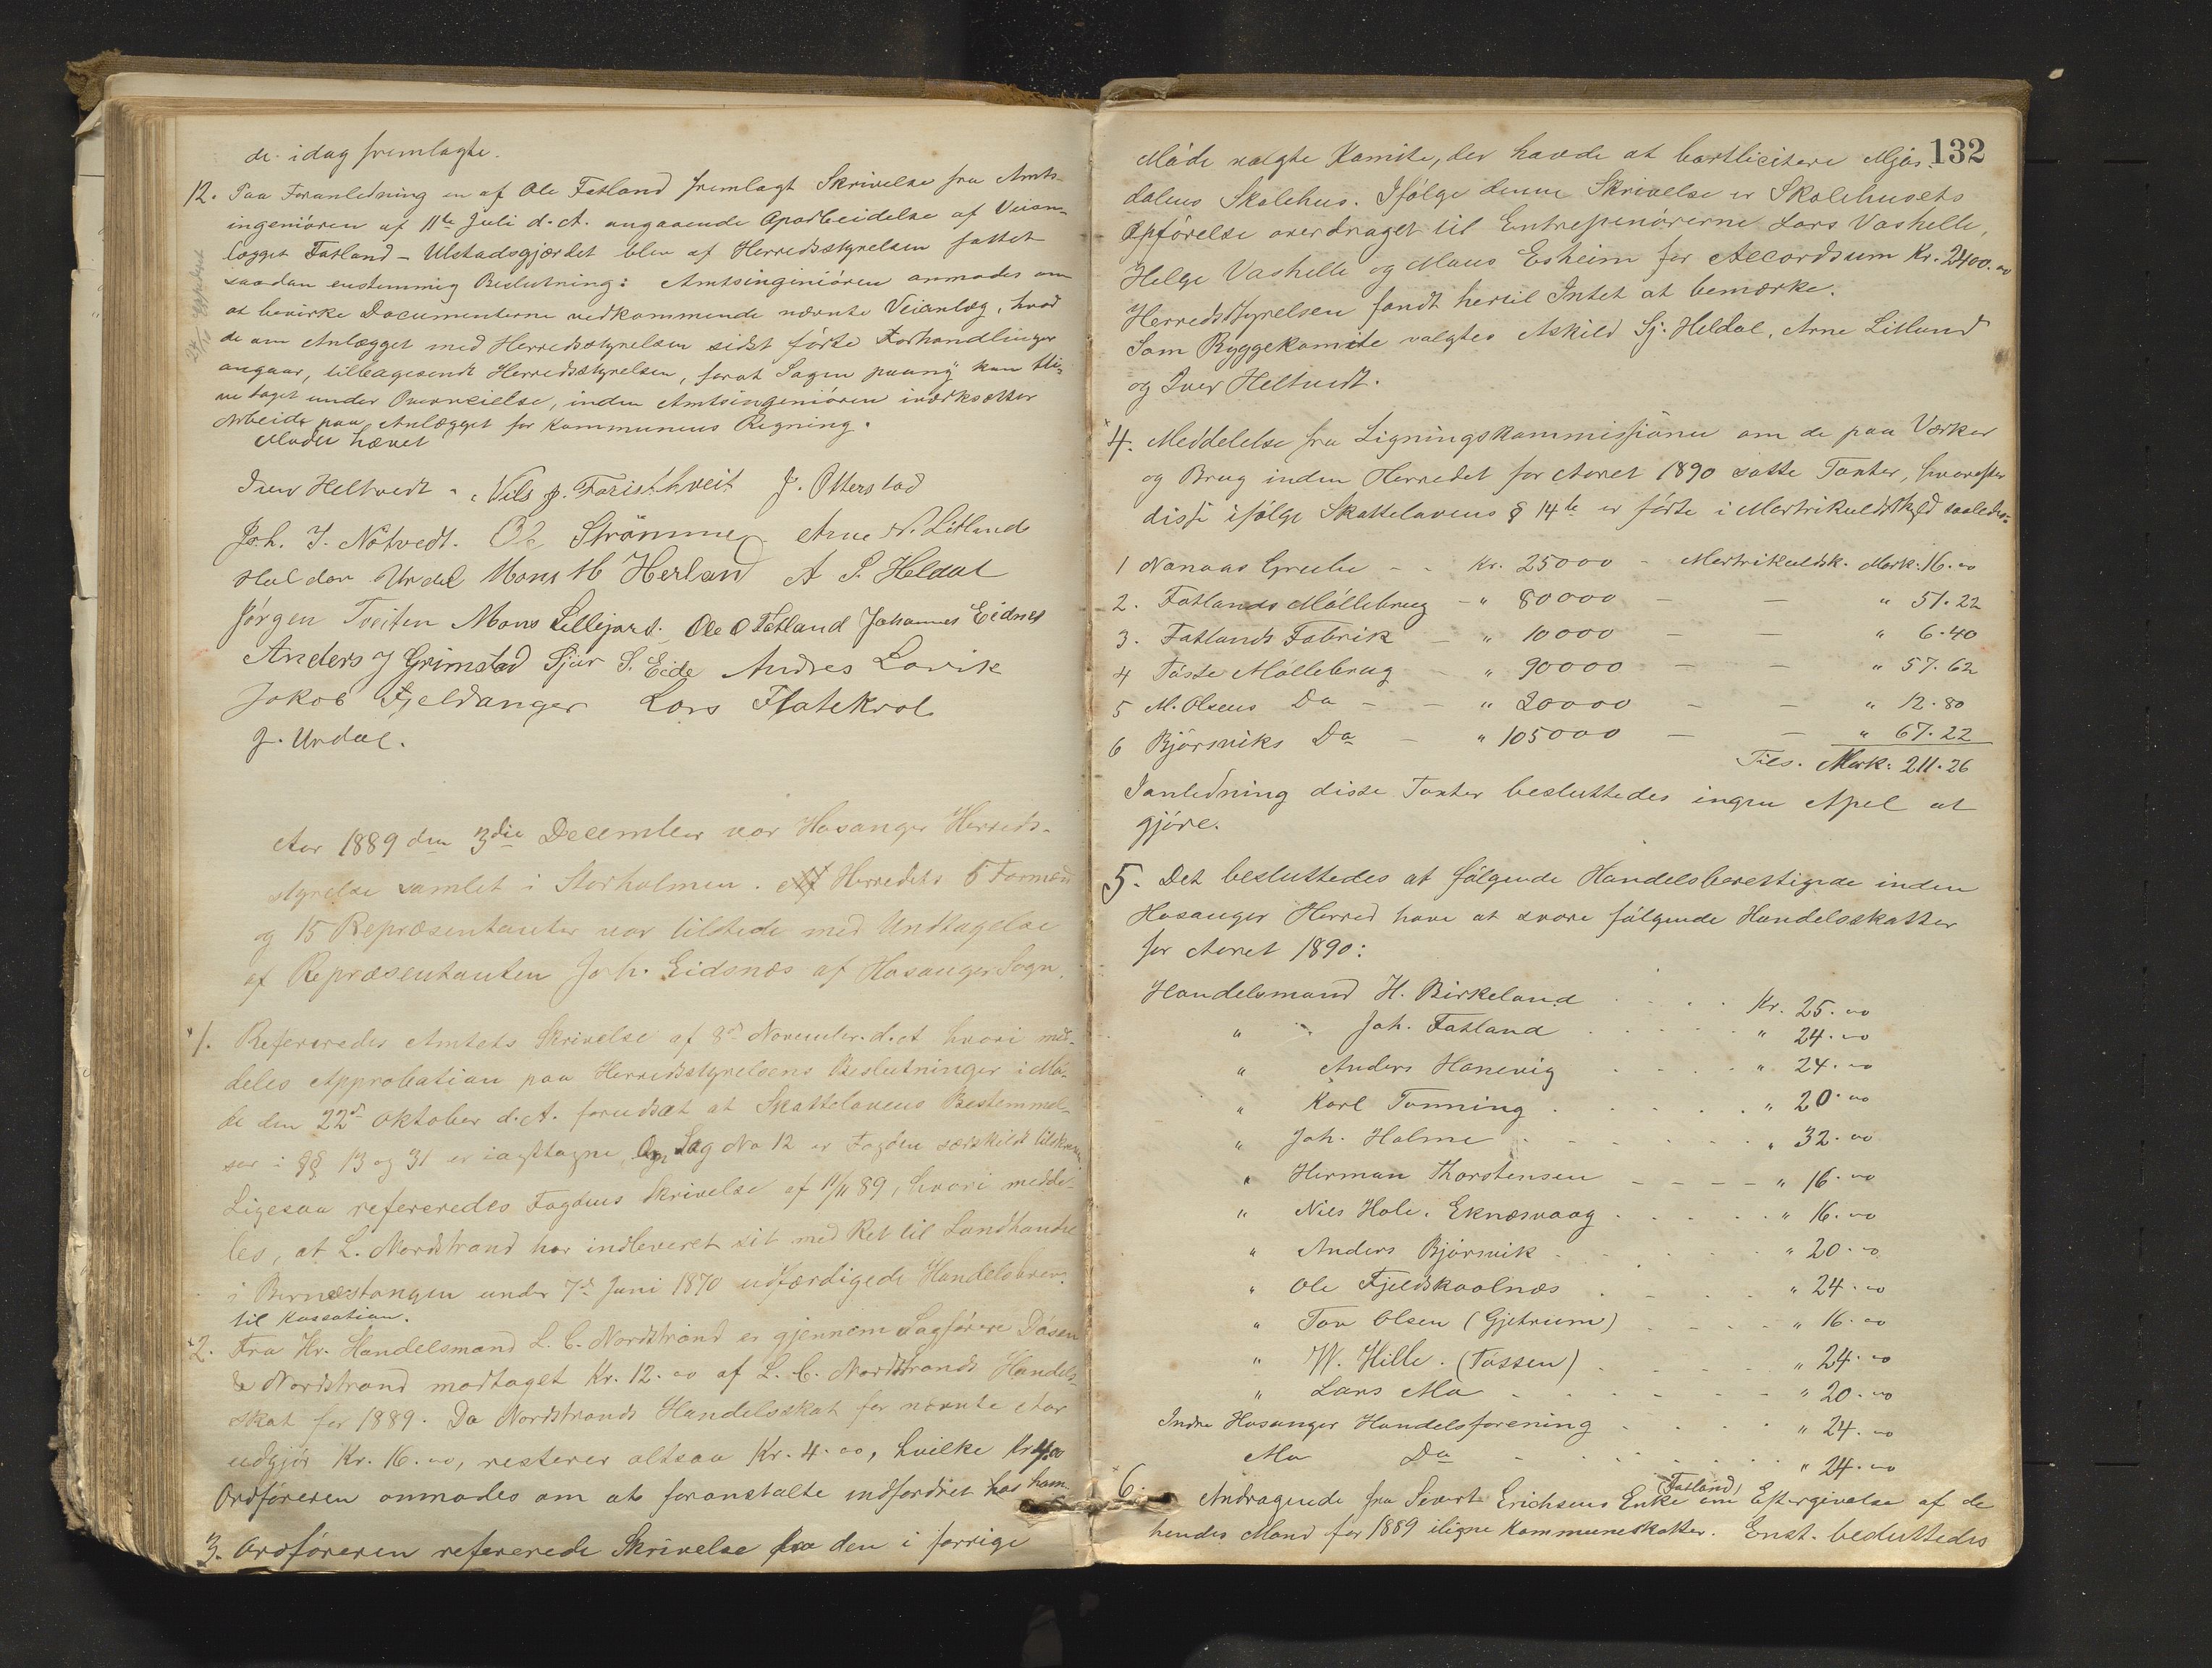 de idag fremlagte.
12. Paa Foranledning en af Ole Fatland fremlagt Skrivelse fra Amts-
ingeniören af 11te Juli d. A. angaaende Oparbeidelse af Veian-
lægget Fatland - Ulstadsgjærdet blev af Herredsstyrelsen fattet
saadan enstemmig Beslutning: Amtsinginiören anmodes om
at bevirke Documenterne vedkommende nævnte Veianlæg, hvad
de om Anlægget med Herredsstyrelsen sidst förte Forhandlinger
angaar, tilbagesendt Herredsstyrelsen, forat Sagen paany kan bli-
ve taget under Overveielse, inden Amtsingeniören iværksætter
Arbeide paa Anlægget for Kommunens Regning.
Mödet hævet
Iver Heltvedt - Nils J. Faristhveit J. Otterstad
Joh. J. Nötvedt. Ol Strömme Arne N. Litland
Haldor Urdal Mons M Herland A S. Heldal
Jörgen Tveiten Mons Lillejord. Ole O Fatland Johannes Eidnes
Anders J Grimstad Sjur S. Eide Andres Lavik
Jakob Fjeldanger Lars Flatekval
J. Urdal.
Aar 1889 den 3die December var Hosanger Herreds-
styrelse samlet i Storholmen. Af Herredets 5 Formænd
og 15 Repræsentanter var tilstede med Undtagelse
af Repræsentanten Joh. Eidsnæs af Hosanger Sogn.
1. Refereredes Amtets Skrivelse af 8d November d. A hvori med-
deles Approbation paa Herredsstyrelsens Beslutninger i Mö-
de den 22d Oktober d. A. forudsat at Skattelovens Bestemmel-
ser i §§ 13 og 31 er iagttagne, Om Sag No 12 er Fogden særskildt tilskreven
Ligesaa refereredes Fogdens Skrivelse af 11/11 89, hvori medde-
les, at L. Nordstrand har indleveret sit med Ret til Landhandel
i Bernæstangen under 7d Juni 1870 udfærdigede Handelsbrev
til Kassation.
2. Fra Hr. Handelsmand L. C. Nordstrand er gjennem Sagförere Däsen
& Nordstrand modtaget Kr. 12.00 af L. C. Nordstrands Handels-
skat for 1889. Da Nordstrands Handelsskat for nævnte Aar
udgjör Kr. 16.00, resterer altsaa Kr. 4.00, hvilke Kr 4.00
Ordföreren anmodes om at foranstalte indfordret hos ham
3. Ordföreren refererede Skrivelse fra den i forrige
132
Möde valgte Komite, der havde at bortlicitere Mjös-
dalens Skolehus. Ifölge denne Skrivelse er Skolehusets
Opförelse overdraget til Entrepenörerne Lars Vashelle,
Helge Vashelle og Mans Esheim for Accordsum Kr. 2400.00
HerredsStyrelsen fandt hertil Intet at bemærke.
Som Byggekomite valgtes Askild Sj. Heldal, Arne Litland
og Iver Heltvedt.
4. Meddelelse fra Ligningskommissionen om de paa Værker
og Brug inden Herredet for Aaret 1890 satte Taxter, hvorefter
disse ifölge Skattelovens § 14de er förte i Martrikuldskyld saaledes:
1 Nonaas Grube - - Kr. 25000 - Martrikuldsk. Mark: 16.00
2. Fatlands Möllebrug - " 80000 - - " 51.22
3. Fatlands Fabrik - " 10000 - - " 6.40
4 Tösse Möllebrug - " 90000 - - " 57.62
5 M. Olsens Do - - " 20000 - - " 12.80
6 Björsviks Do - " 105000 - - " 67.22
Tils. Mark: 211.26
Ianledning disse Taxter besluttedes ingen Apel at
gjöre.
5. Det besluttedes at fölgende Handelsberettigede inden
Hosanger Herred have at svare fölgende Handelsskatter
for Aaret 1890:
Handelsmand H. Birkeland Kr. 25.00
" Joh. Fatland " 24.00
" Anders Hanevig " 24.00
" Karl Tonning " 20.00
" Joh. Holme " 32.00
" Herman Thorstensen " 16.00
" Nils Hole. Eknæsvaag " 16.00
" Anders Björsvik " 20.00
" Ole Fjeldskaalnæs " 24.00
" Tov Olsen (Gjetrum) " 16.00
" W. Hille. (Tössen) " 24.00
" Lars Mo " 20.00
Indre Hosanger Handelsforening " 24.00
Mo Do " 24.00
6. Andragende fra Sivert Erichsens Enke (Fatland) om Eftergivelse af de
hendes Mand for 1889 iligne Kommuneskatter. Enst. besluttedes